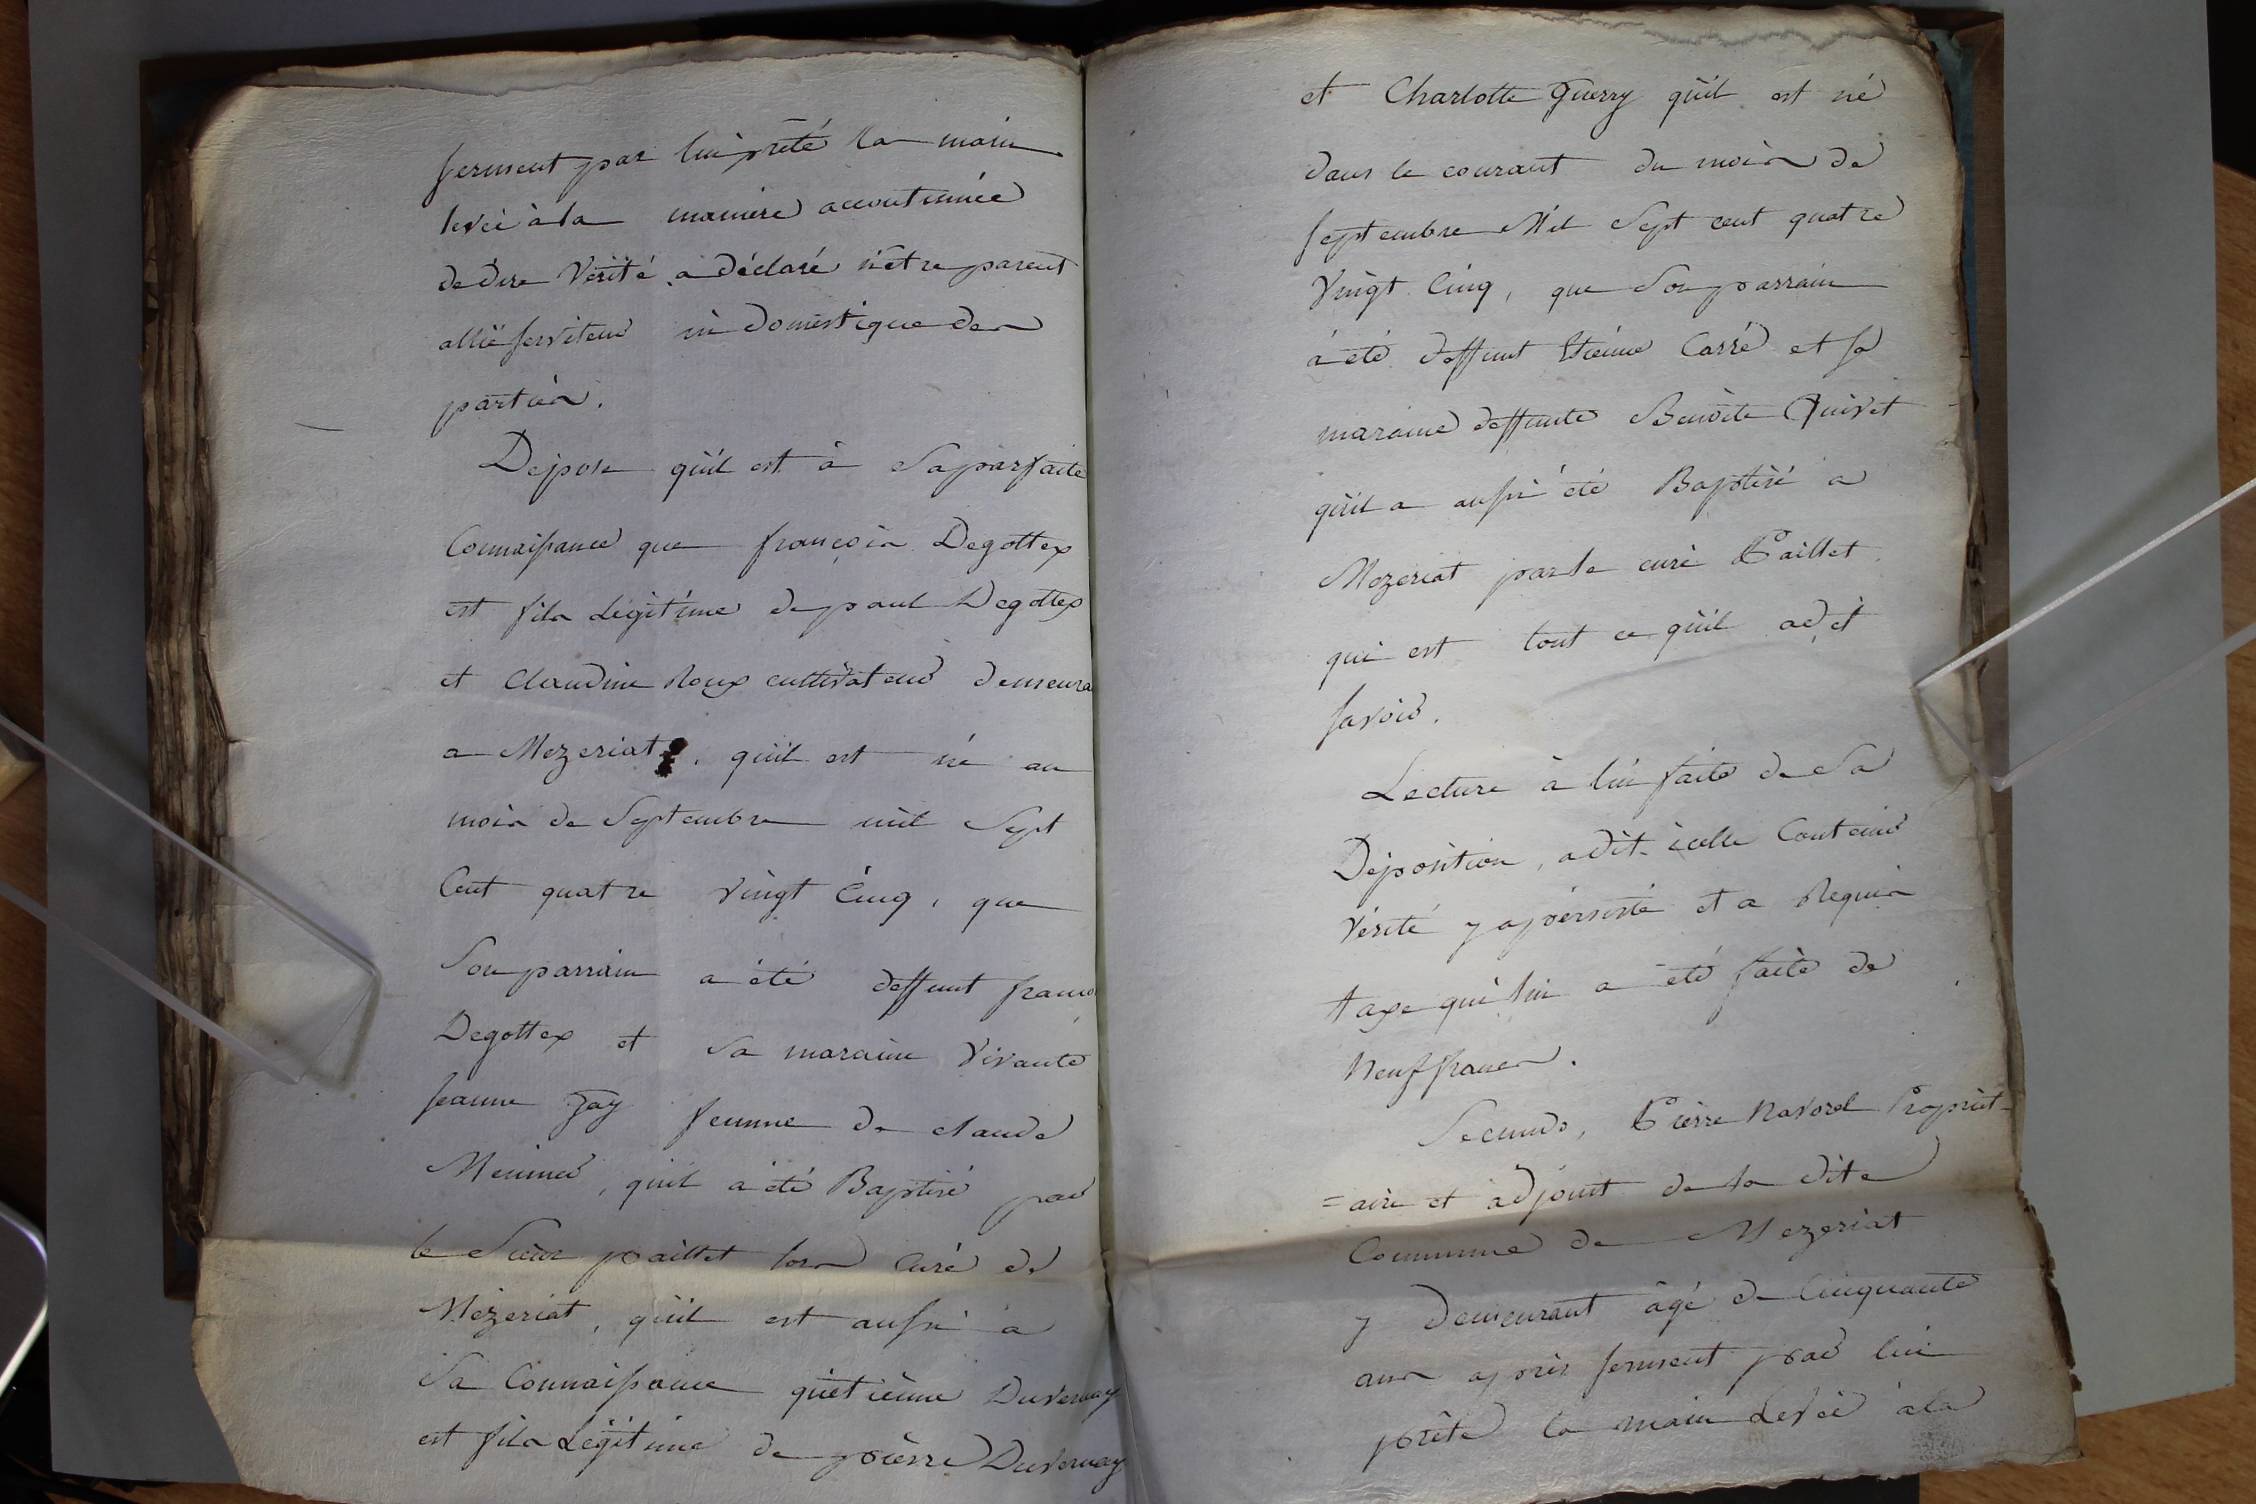 serment par lui prété la main
levée à la maniere accoutumée
de dire Vérité, a déclaré n'etre parent
allié serviteur ni domestique des
parties.
Depose qu'il est à sa parfaite
Connaissance que françois Degottex
est fils Légitime de paul Degottex
et Claudine Roux cultivateur demeura
a Mezeriat, qu'il est né au
mois de Septembre mil Sept
Cent quatre vingt Cinq, que
Son parrain a été deffunt franço
Degottex et Sa maraine Vivante
Jeanne Jay femme de Claude
qu'il a été Baptisé par
le Sieur paillet lors Curé de
Mézeriat, qu'il est aussi à
Sa Connaissance qu'etienne Duvernay
est fils Légitime de pierre Duvernay
et Charlotte Guerry qu'il est né
dans le courant du mois de
Septembre Mil Sept cent quatre
Vingt Cinq, que Son parrain
à été deffunt Etienne Carré et sa
maraine deffunte Benoite Quivet
qu'il a aussi été Baptisé a
Mezeriat par le curé Paillet
qui est tout ce qu'il a dit
savoir.
Lecture à lui faite de Sa
Déposition, a dit icelle Contenir
Vérité y a persisté et a Requis
taxe qui lui a été faite de
Neuf francs.
Secundo, Pierre Navorel Propriét-
=aire et adjoint de la dite
Commune de Mezeriat
y demeurant âgé de Cinquante
ans après serment par lui
prêté la main Levée à la